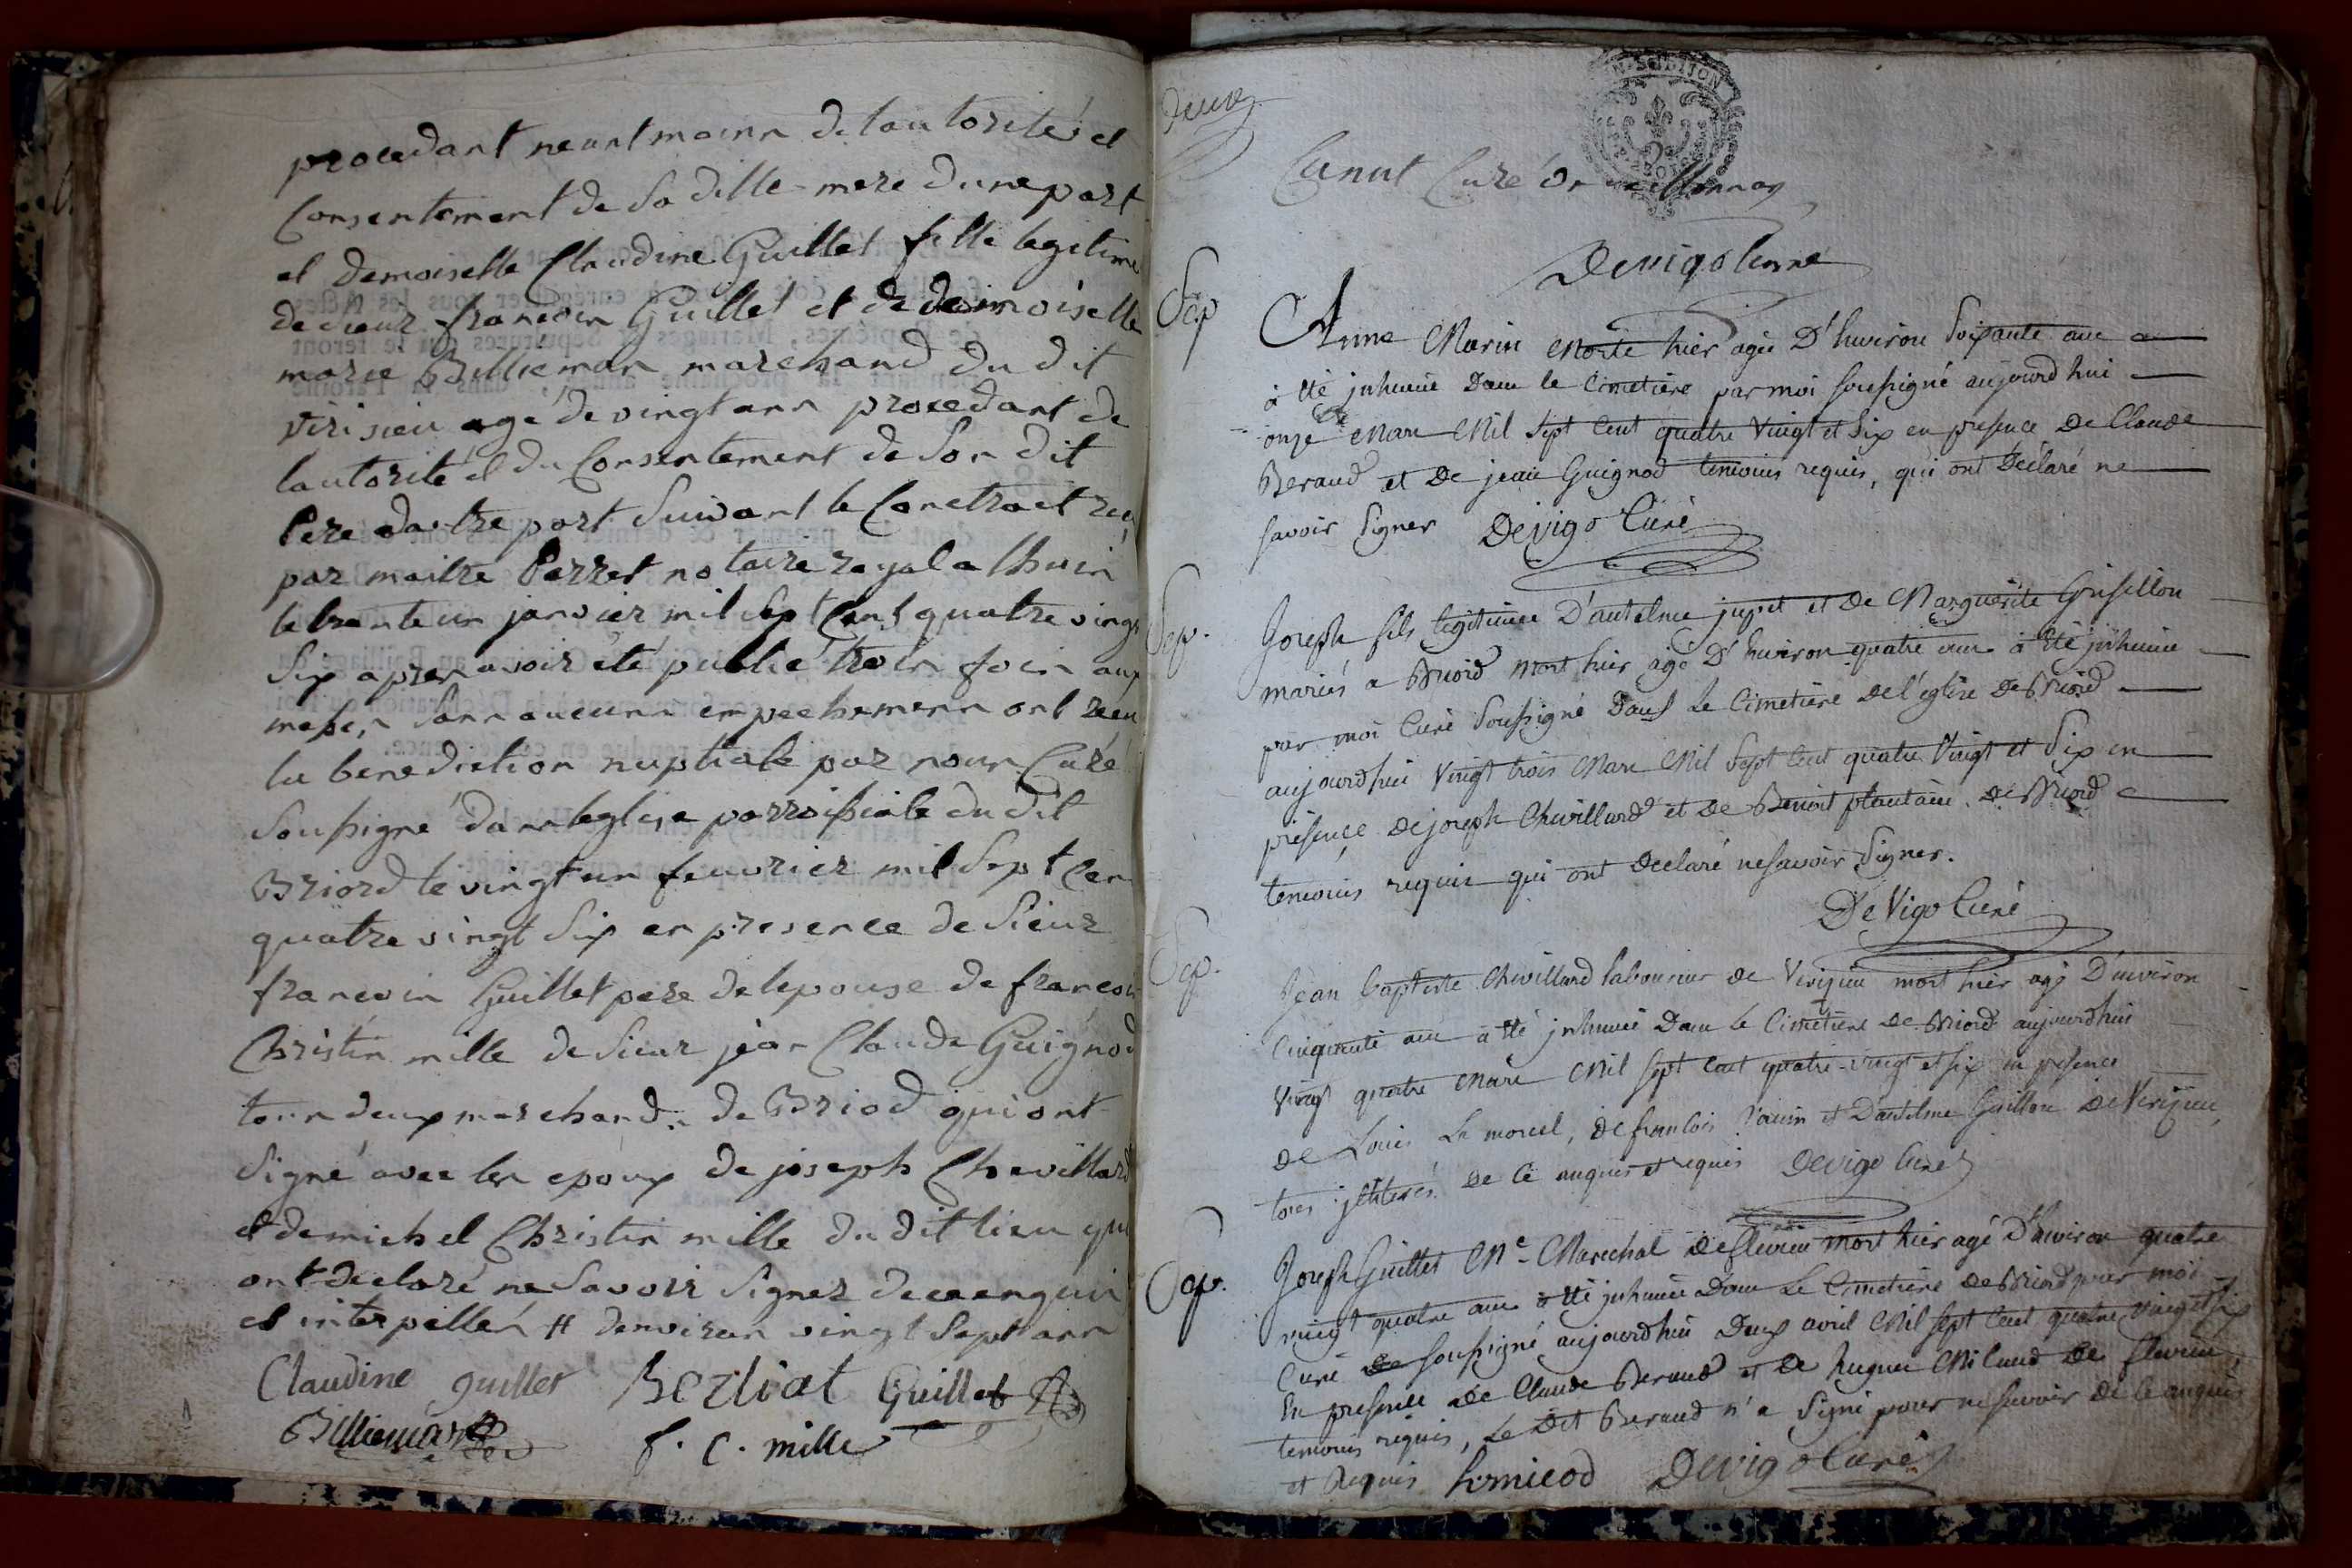 procedant neantmoins de lautorité et
Consentement de Sa ditte mere dune part
et demoiselle Claudine Guillet fille legitime
de sieur francois Guillet et de demoiselle
marie Billiemas marchand du dit
virisieu agé de vingt ans procedant de
lautorité et du Consentement de Son dit
Pere dautre part Suivant le Contract reçu
par maitre Perret notaire royal a lhuis
le trente un janvier mil Sept Cent quatre vingt
Six apres avoir été publié trois fois aux
messes, Sans aucuns empechemens ont reçu
la benediction nuptiale par nous Curé
Soussigné dans leglise parroissiale du dit
Briord le vingt un feuvrier mil Sept Cent
quatre vingt Six en presence de Sieur
francois Guillet pere de lepouse de francois
Christin mille de Sieur jean Claude Guignod
tous deux marchands de Briod qui ont
Signé avec les epoux de joseph Chevillard
et de michel Christin mille du dit lieu qui
ont declaré ne Savoir Signer de ce enquis
et interpellés # denviron vingt Sept ans
Claudine guillet Berliat Guillet
Billiemas f. c. mille
Deux
N. S. DIJON
Canut Curé
Devigo Curé
Sep
Anne Marin Morte hier agée D'huviron Soixante ans
à été jnhumée Dans le Cimetiere par moi soussigné aujourd'hui
onze Mars Mil Sept Cent quatre Vingt et Six en presence De Claude
Beraud et De jean Guignod temoins requis, qui ont Déclaré ne
savoir Signer Devigo Curé
Sep.
Joseph fils legitime D'antelme jupet et De Marguerite Grisillon
mariés a Briord mort hier agé D'huviron quatre ans à été jnhumé
par moi Curé Soussigné Dans Le Cimetiere de l'église De Briord
aujourd'hui Vingt trois Mars Mil Sept Cent quatre Vingt et Six en
présence De joseph Chevillard et De Benoit plantain De Briord
temoins requis qui ont Declaré ne savoir Signer.
De Vigo Curé
Sep.
Jean baptiste Chevillard laboureur de Verizieu mort hier agé D'environ
Cinquante ans à été jnhumé Dans le Cimetiere De Briord aujourd'hui
Vingt quatre Mars Mil Sept Cent quatre-vingt et six en presence
de Louis La morcel, De francois et Dantelme Guillon De Verizieu,
tous jllitérés De Ce anquis et requis Devigo Curé
Sep.
Joseph Guillet Me Marechal De flevieu mort hier agé D'huviron quatre
vingt quatre ans à été jnhumé Dans Le Cimetiere De Briord par moi
Curé soussigné aujourd'hui Deux avril Mil Sept Cent quatre Vingt et Six
En presence De Claude Beraud et De hugues Milaud De flevieu
temoins requis, Le Dit Beraud n'a Signé pour ne savoir de Ce anquis
et Requis Devigo Curé